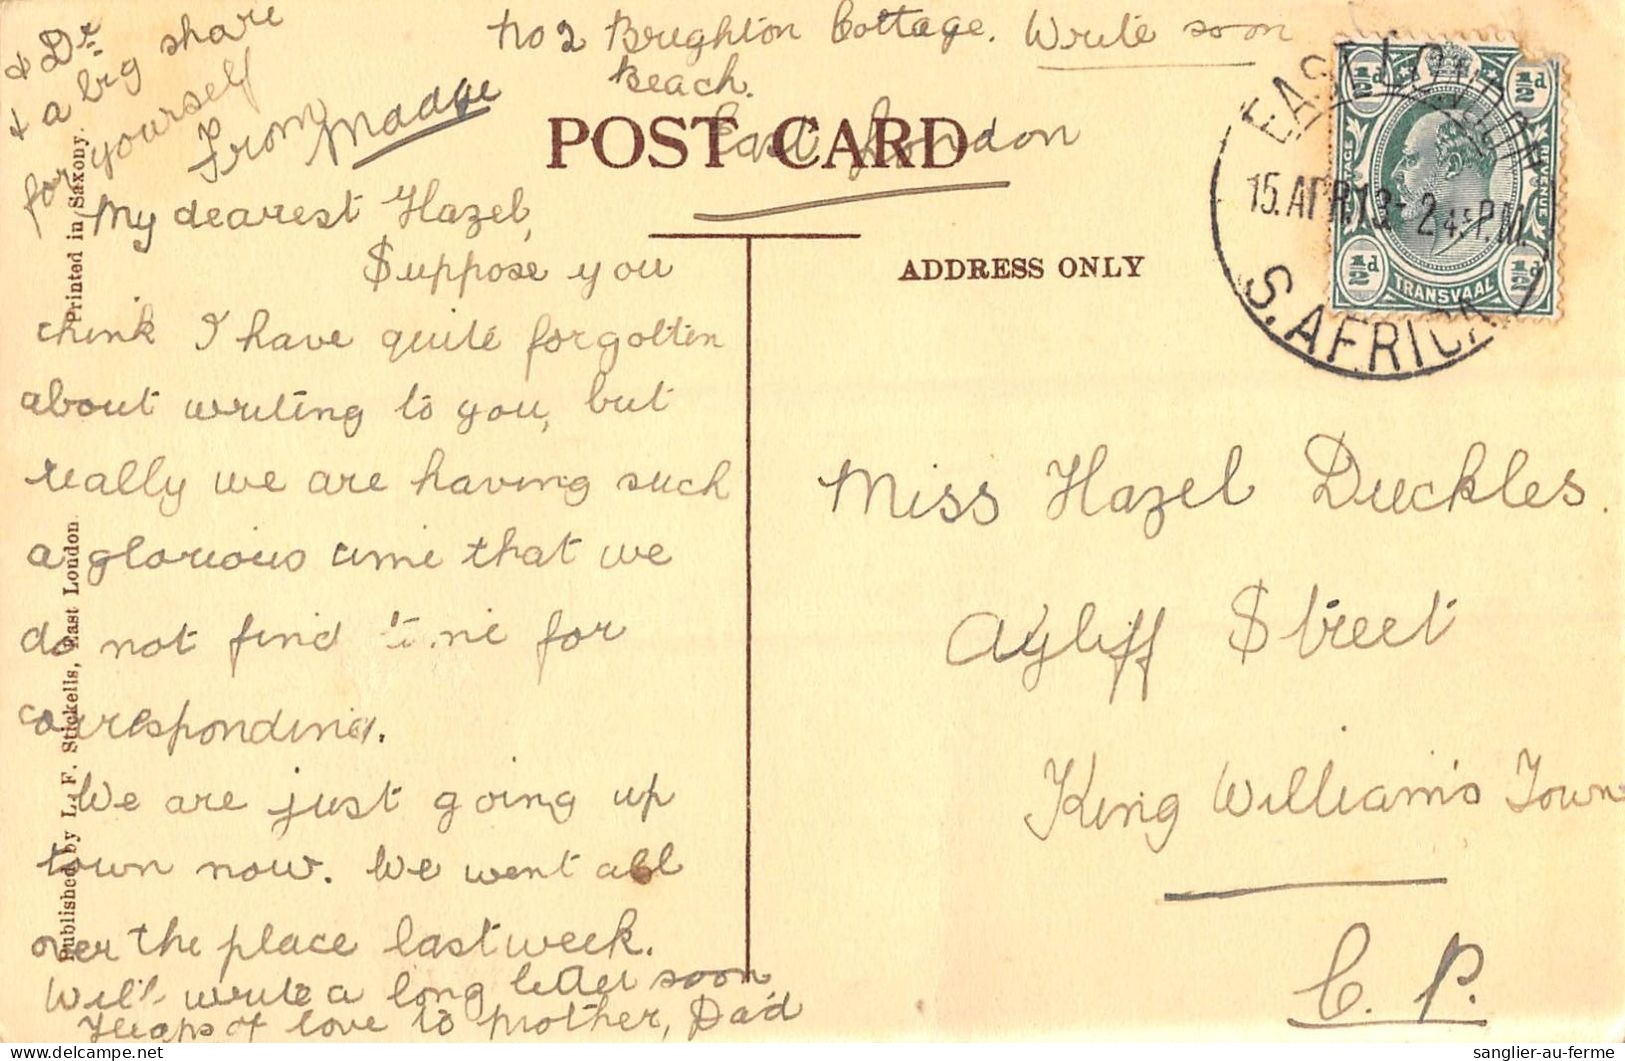 No 2 Brighton Cottage. Write soon
Beach.
East London
POST CARD
My dearest Hazel,
Suppose you
think I have quite forgotten
about writing to you, but
really we are having such
a glorious time that we
do not find time for
corresponding.
We are just going up
town now. We went all
over the place last week.
Will write a long letter soon
Heaps of love to mother, Dad
& Dr
& a big share
for yourself
From Madge
Printed in Saxony.
Published by L. F. Stickells, East London.
ADDRESS ONLY
EAST LONDON
15. APR. 13 - 2 45 P.M.
S. AFRICA
POSTAGE
REVENUE
½d
½d
½d
½d
TRANSVAAL
Miss Hazel Duckles.
Ayliff Street
King William's Town
C. P.
sanglier-au-ferme